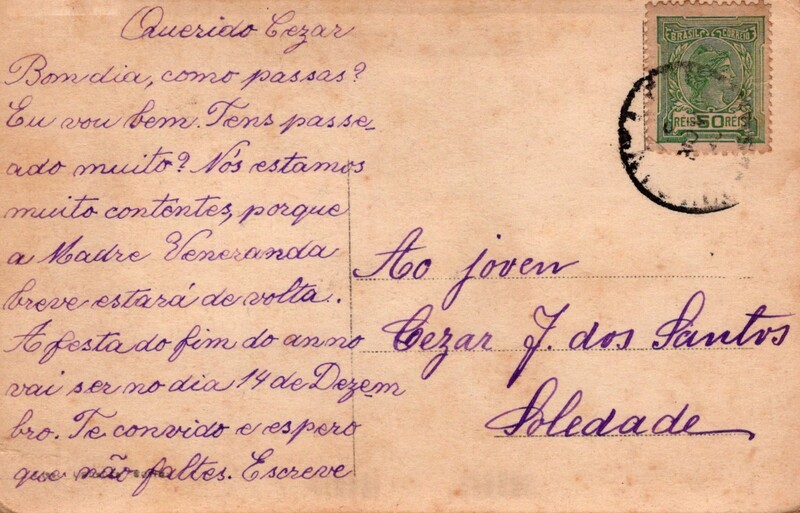 Querido Cezar
Bom dia, como passas?
Eu vou bem. Tens passe-
ado muito? Nós estamos
muito contentes, porque
a Madre Veneranda
breve estará de volta.
A festa do fim do anno
vai ser no dia 14 de Dezem
bro. Te convido e espero
que não faltes. Escreve
BRASIL CORREIO
REIS 50 REIS
Ao joven
Cezar J. dos Santos
Soledade